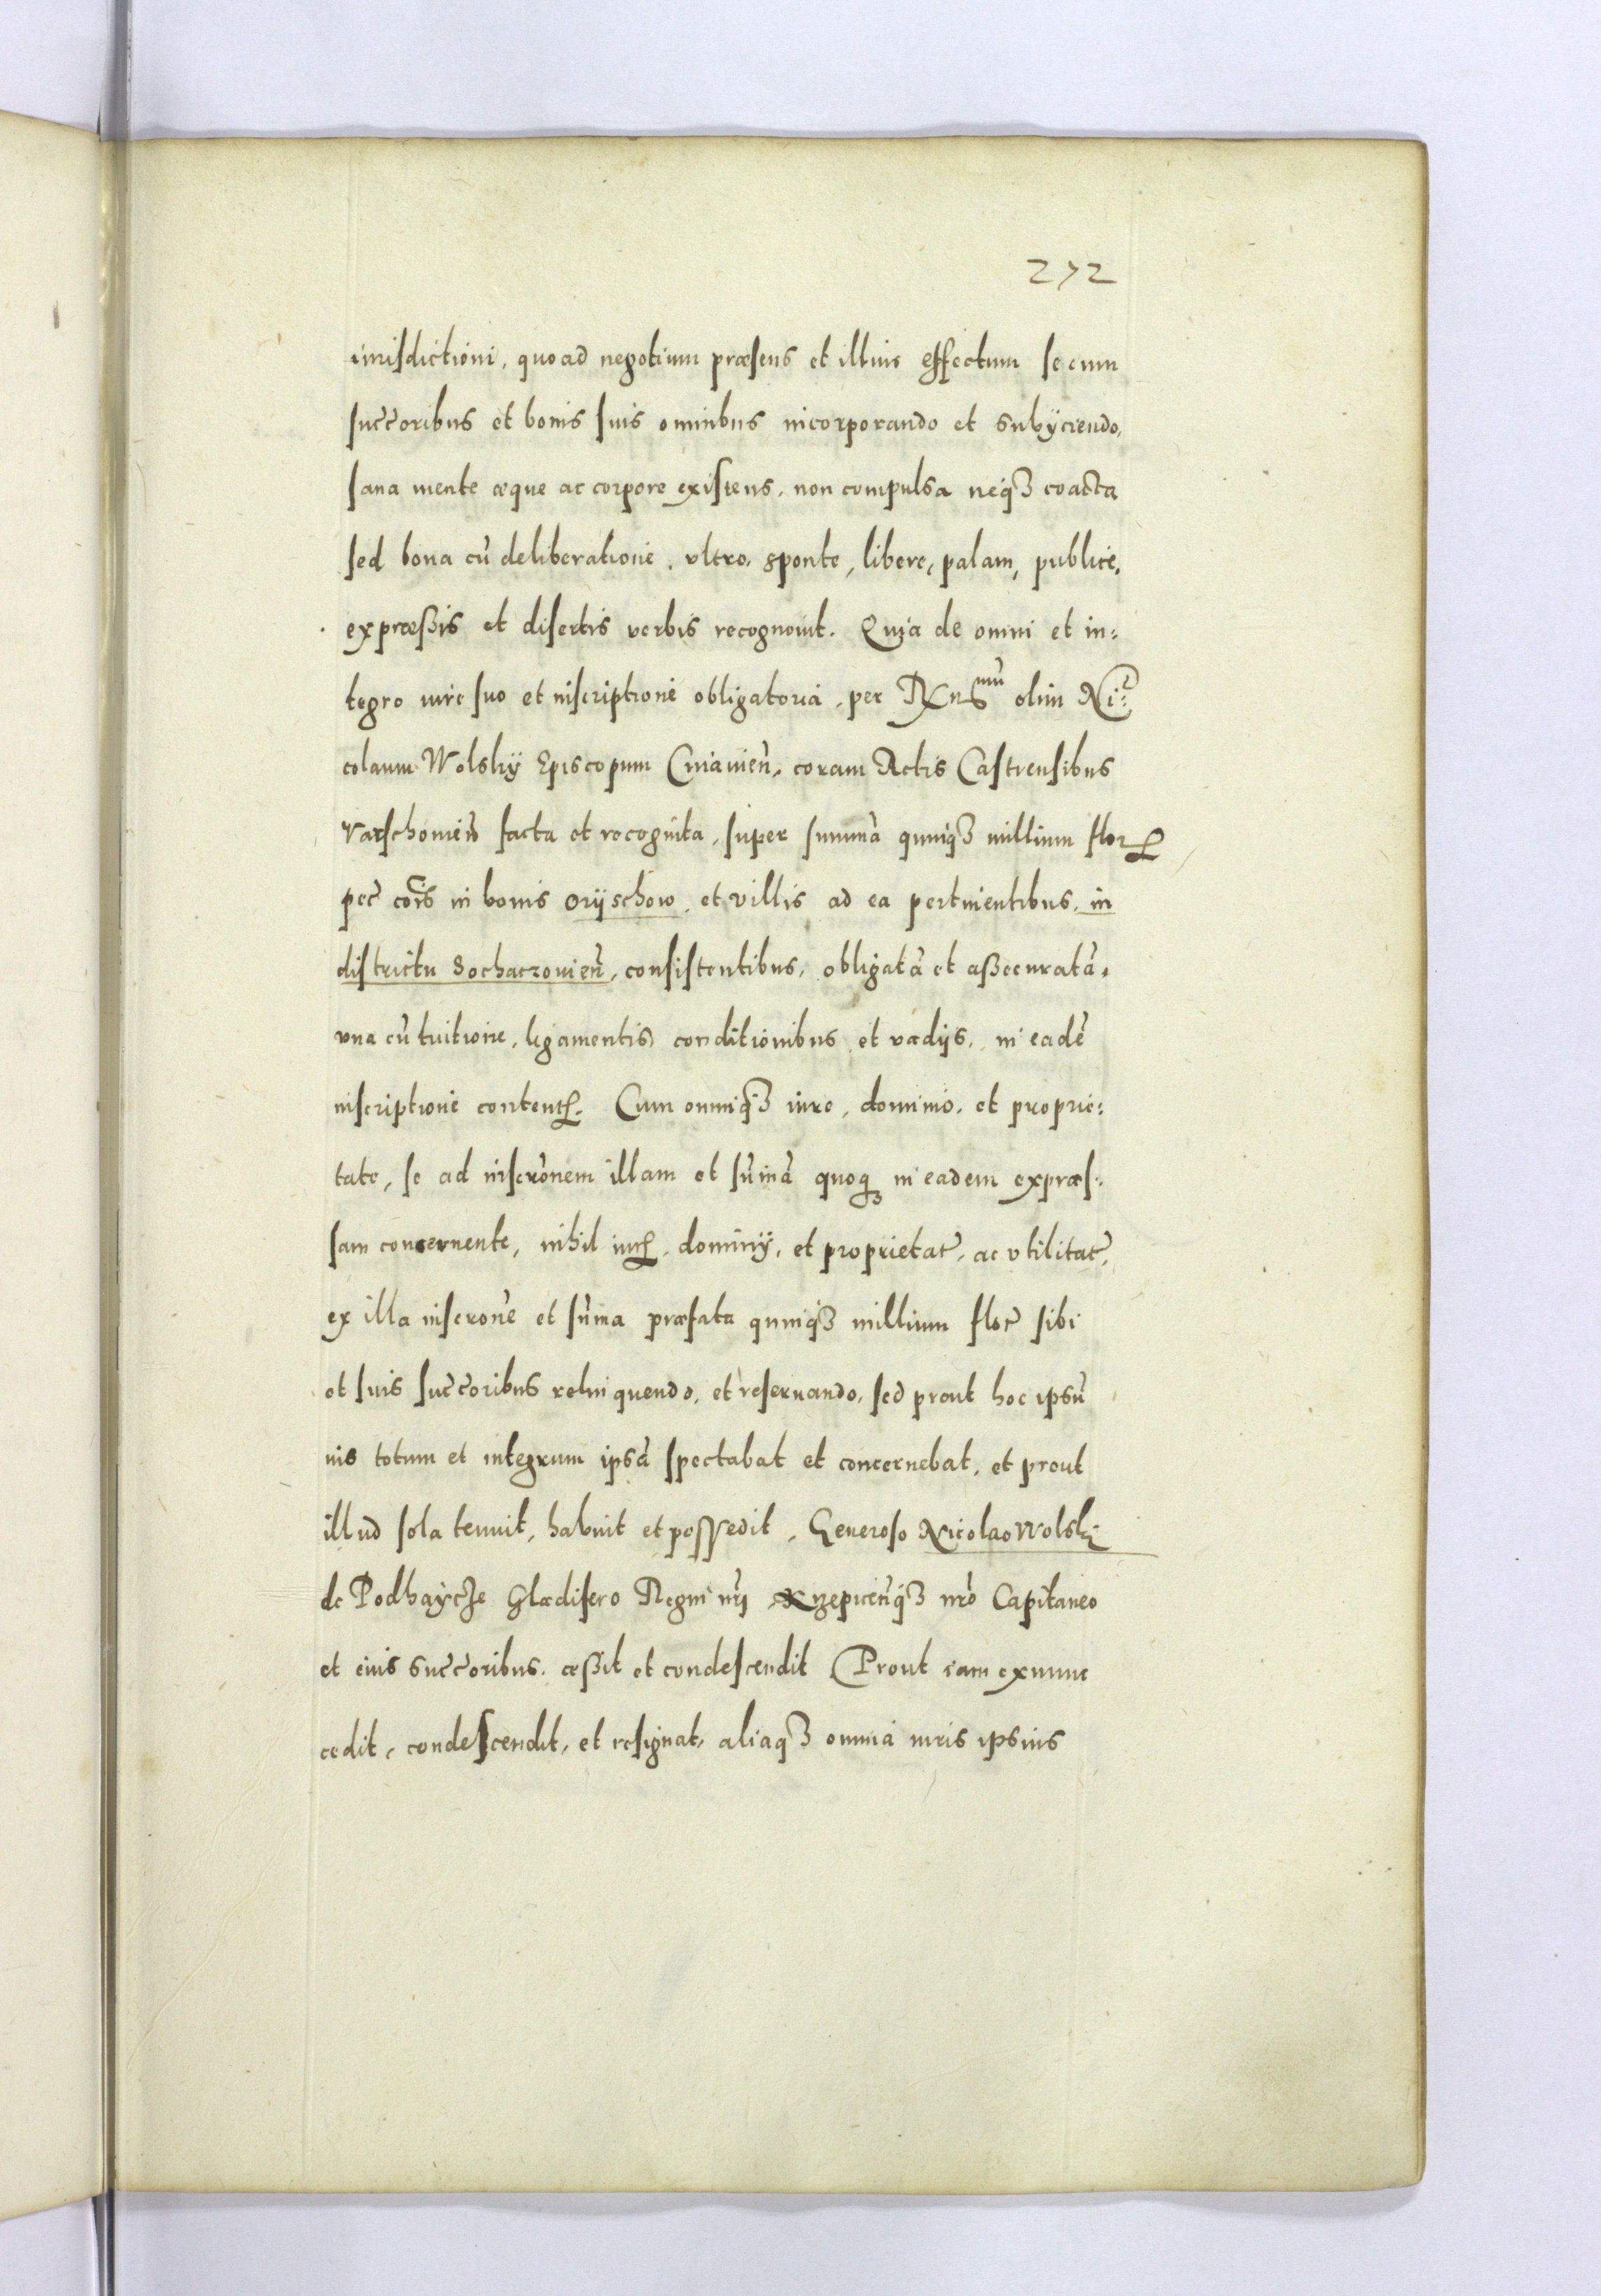 272
iurisdictioni, quoad negotium præsens et illius effectum se cum
succ̃oribus et bonis suis omnibus incorporando et subÿciendo,
sana mente æque ac corpore existens, non compulsa neqȝ coacta
sed bona cũ deliberatione, vltro, sponte, libere, palam, publice,
expræssis et disertis verbis recognouit. Quia de omni et in=
tegro iure suo et inscriptione obligatoria, per Rñdissmũ olim Ni=
colaum Wolskÿ Episcopum Cuiauieñ, coram Actis Castrensibus
Varschouieñ facta et recognita, super summã quinqȝ millium florꝝ
pec̃ cõis in bonis Orÿschow, et villis ad ea pertinentibus, in
districtu Sochaczouieñ, consistentibus, obligatã et assecuratã,
vna cũ tuitione, ligamentis conditionibus et vadijs, in eadẽ
inscriptione contentꝭ. Cum omniqȝ iure, dominio, et proprie=
tate, se ad inscrõnem illam et sũmã quoqȝ in eadem expræs=
sam concernente, nihil iurꝭ, dominÿ, et proprietat̃, ac vtilitat̃,
ex illa inscrõne et sũma præfata quinqȝ millium flor̃ sibi
et suis succ̃oribus relinquendo, et reseruando, sed prout hoc ipsũ
ius totum et integrum ipsã spectabat et concernebat, et prout
illud sola tenuit, habuit et possedit, Generoso Nicolao Wolski
de Podhaÿcze Glædifero Regni nr̃i Krzepiceñqȝ nr̃o Capitaneo
et eius succ̃oribus, cessit et condescendit Prout iam exnunc
cedit, condescendit, et resignat, aliaqȝ omnia iuris ipsius